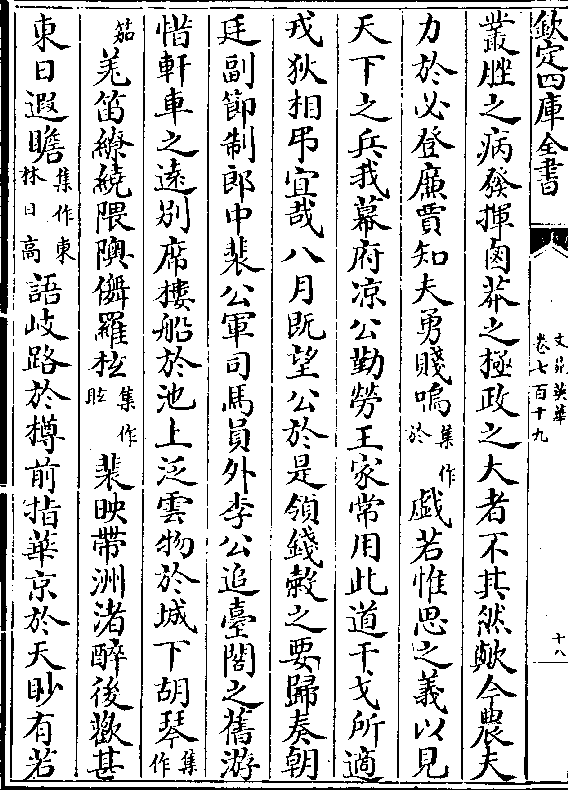 欽定四庫全書
文苑英華
卷七百十九
十八
叢脞之病發揮鹵莽之極政之大者不其然歟今農夫
力於必登廉賈知夫勇賤嗚集作於戯若惟思之義以見
天下之兵我幕府凉公勤勞王家常用此道干戈所適
戎狄相弔宜哉八月既望公於是領錢榖之要歸奏朝
廷副節制郎中裴公軍司馬員外李公追臺閣之舊游
惜軒車之遠别席摟船於池上泛雲物於城下胡琴集作
笳羌笛繚繞隈隩儛羅袨集作昡裴映帶洲渚醉後歡甚
東日遐瞻集作東林日高語岐路於樽前指華京於天眇有若